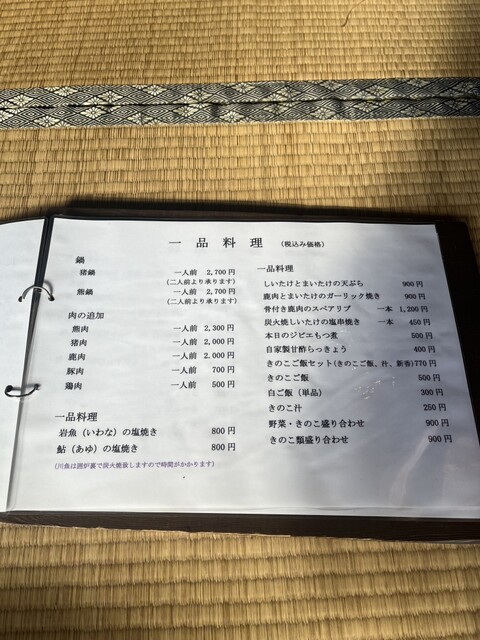 一品料理 (税込み価格)
鍋
猪鍋 一人前 2,700円
(二人前より承ります)
熊鍋 一人前 2,700円
(二人前より承ります)
肉の追加
熊肉 一人前 2,300円
猪肉 一人前 2,000円
鹿肉 一人前 2.000円
豚肉 一人前 700円
鶏肉 一人前 500円
一品料理
岩魚(いわな)の塩焼き 800円
鮎(あゆ)の塩焼き 800円
(川魚は囲が裏で炭火焼致しますので時間がかかります)
一品料理
しいたけとまいたけの天ぷら 900円
鹿肉とまいたけのガーリック焼き 900円
骨付き鹿肉のスペアリブ 一本 1,200円
炭火焼しいたけの塩串焼き 一本 450円
本日のジビエもつ煮 500円
自家製甘酢らっきょう 400円
きのこご飯セット(きのこご飯、汁、新香)770円
きのこご飯 500円
白ご飯(単品) 300円
きのこ汁 250円
野菜・きのこ盛り合わせ 900円
きのこ類盛り合わせ 900円